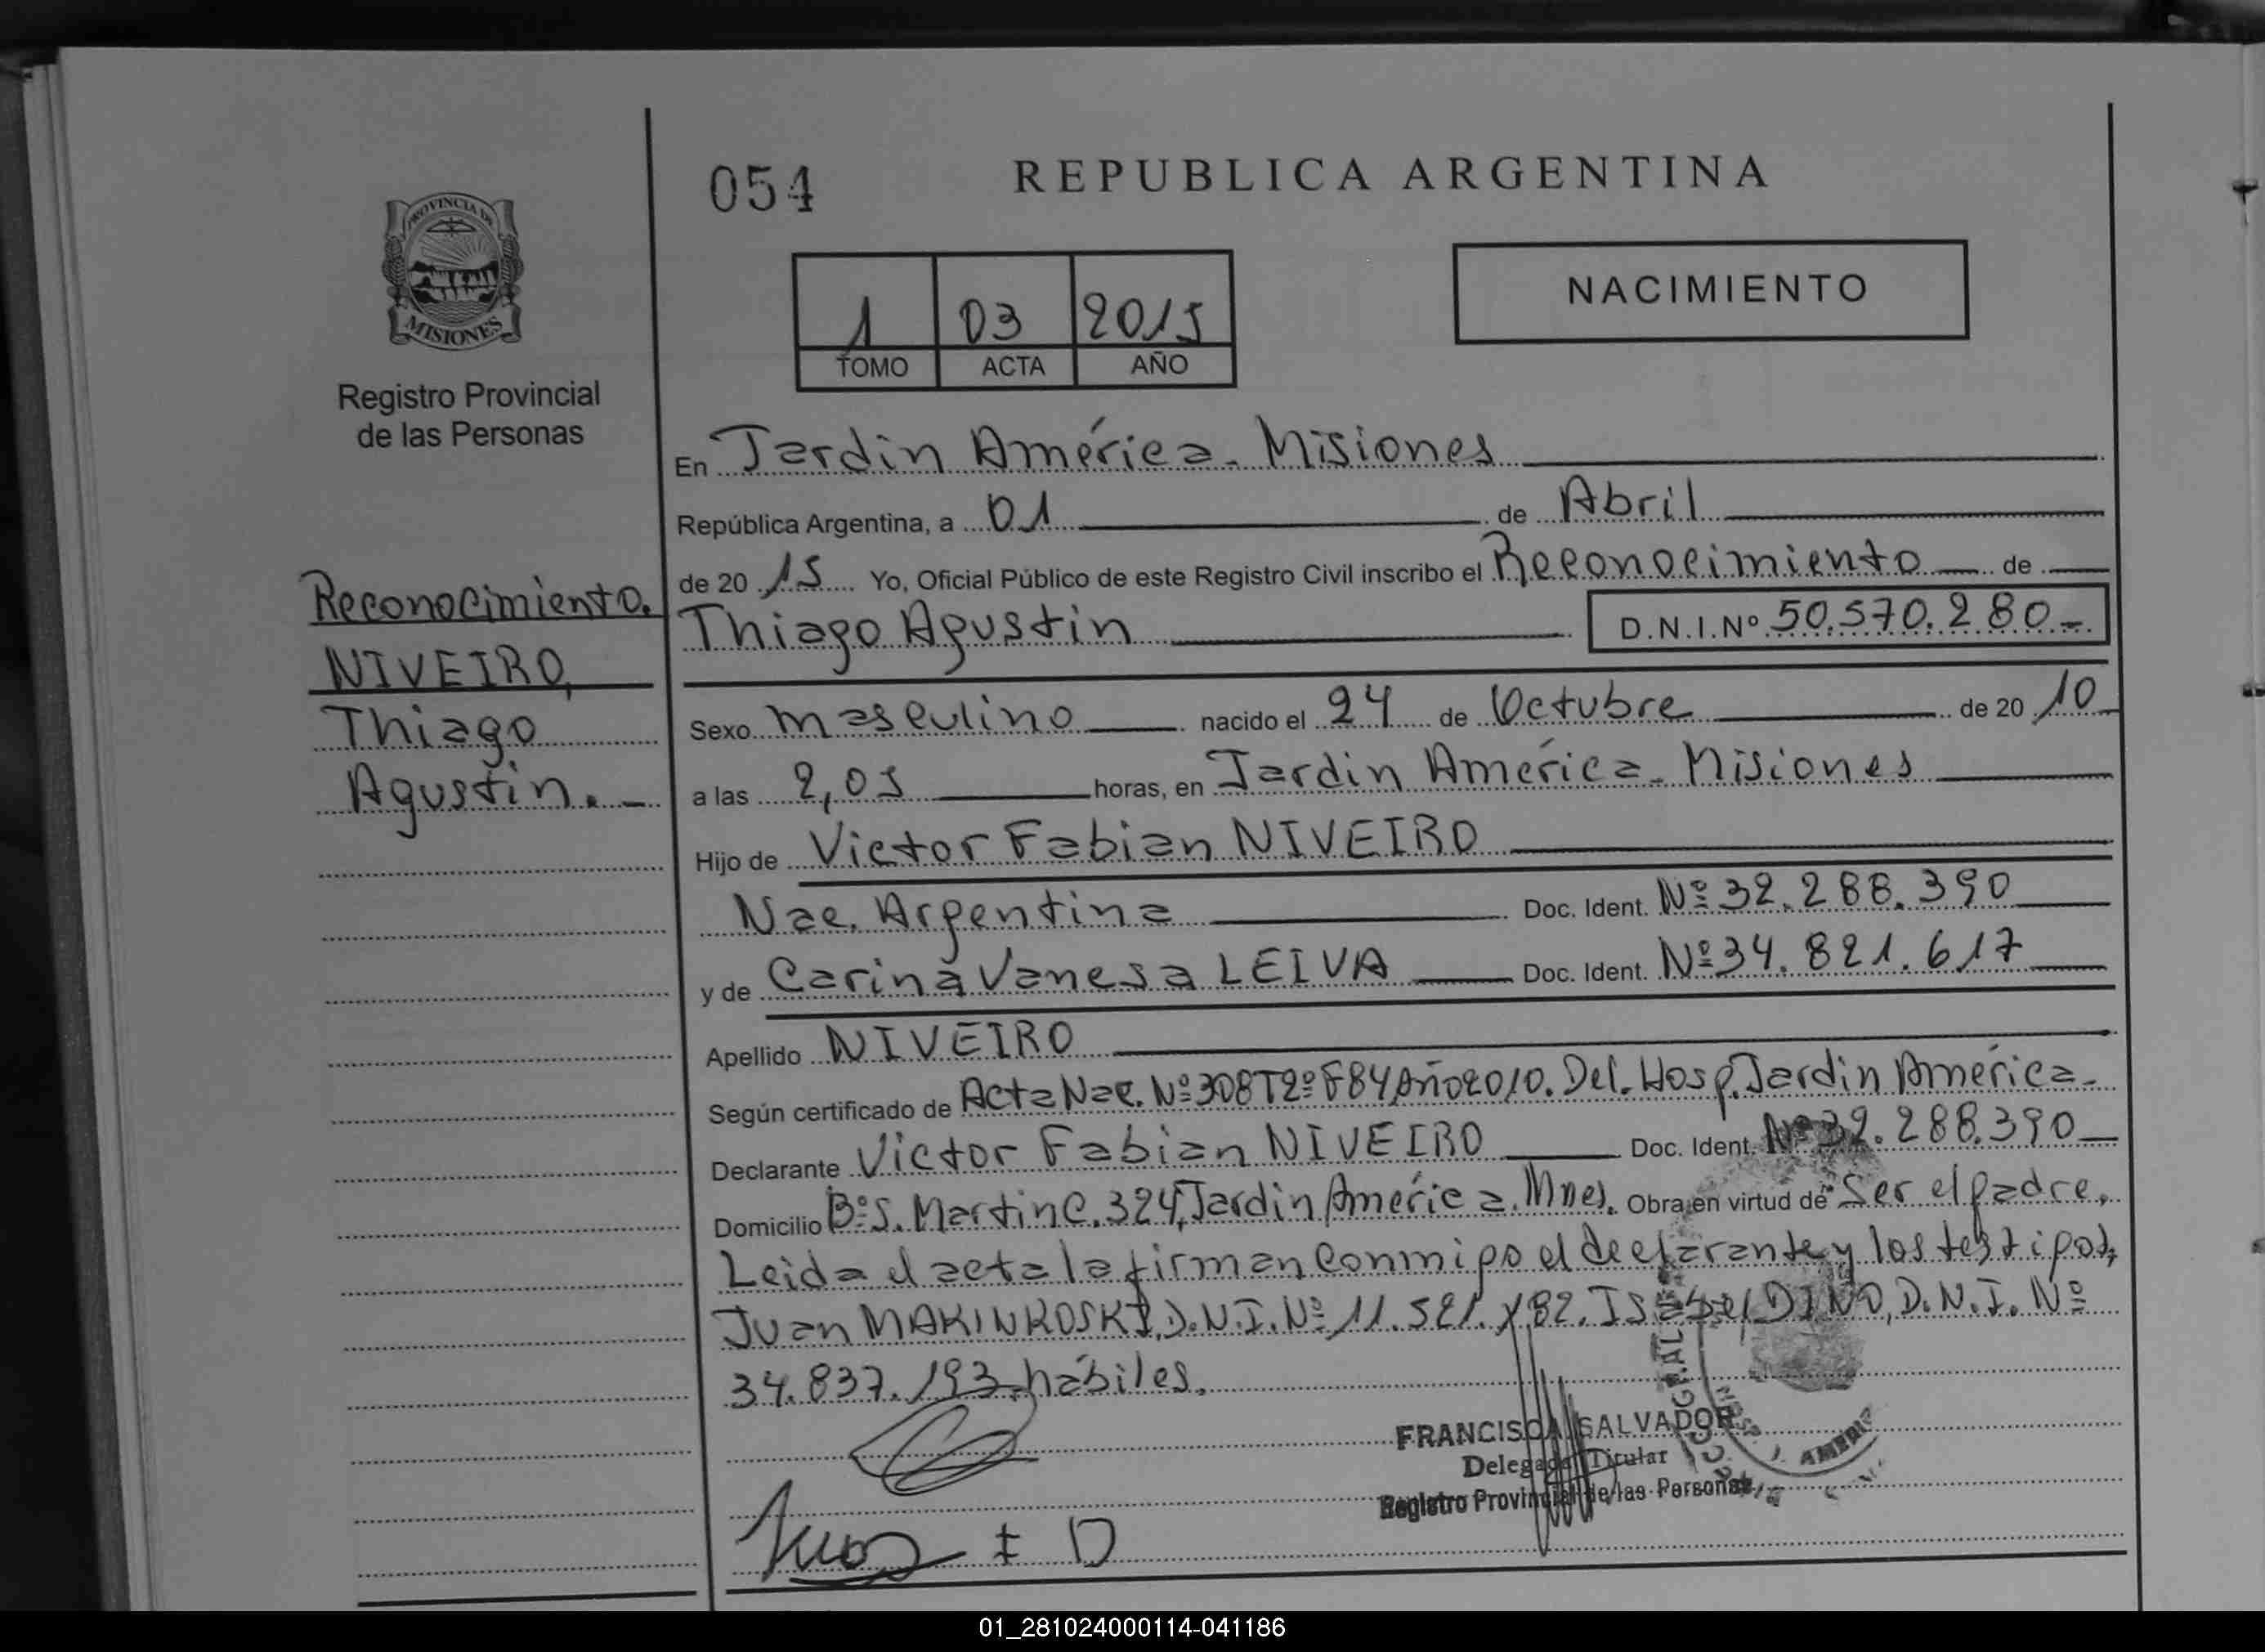 054
REPUBLICA ARGENTINA
PROVINCIA DE
MISIONES
Registro Provincial
de las Personas
1 03 2015
TOMO ACTA AÑO
NACIMIENTO
En Jardin América - Misiones
República Argentina, a 01 de Abril
de 20 15 Yo, Oficial Público de este Registro Civil inscribo el Reconocimiento de
Thiago Agustin
D.N.I.Nº 50.570.280-
Reconocimiento.
NIVEIRO,
Thiago
Agustin.-
Sexo masculino nacido el 24 de Octubre de 20 10
a las 2,05 horas, en Jardin América - Misiones
Hijo de Victor Fabian NIVEIRO
Nac. Argentina Doc. Ident. Nº 32.288.390
y de Carina Vanesa LEIVA Doc. Ident. Nº 34.821.617
Apellido NIVEIRO
Según certificado de Acta Nac. Nº 308 Tº2 F84 Año 2010. Del. Hosp. Jardin América-
Declarante Victor Fabian NIVEIRO Doc. Ident. Nº 32.288.390
Domicilio Bº S. Martin C. 324, Jardin América. Mnes. Obra en virtud de Ser el padre,
Leida el acta la firman conmigo el declarante y los testigos,
Juan MAKINKOSKI, D.N.I. Nº 11.521. Isabel DINO, D.N.I. Nº
34.837.193 hábiles.
FRANCISCA SALVADOR
Delegada Titular
Registro Provincial de las Personas
I D
01_281024000114-041186